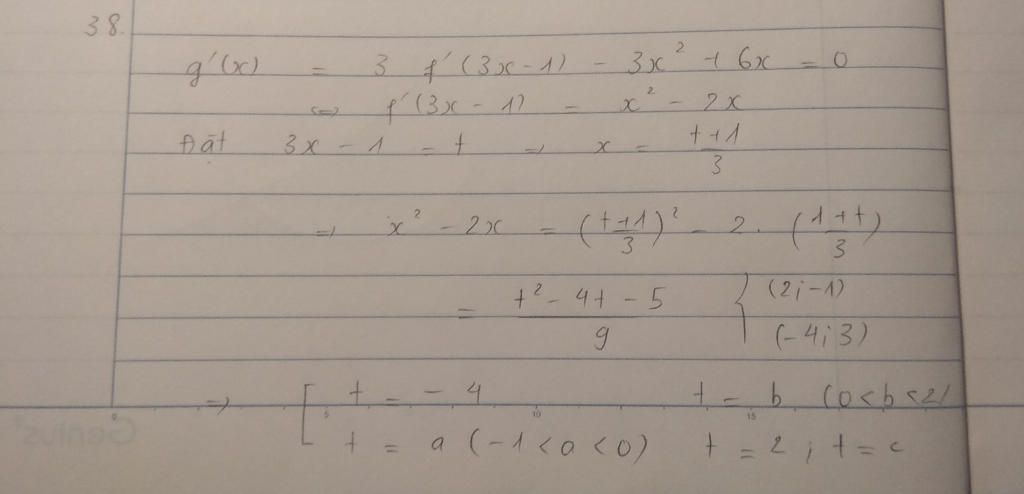 38.
g'(x) = 3 f'(3x-1) - 3x² + 6x = 0
<=> f'(3x - 1) = x² - 2x
Đặt 3x - 1 = t => x = (t+1)/3
=> x² - 2x = ((t+1)/3)² - 2. ((1+t)/3)
= (t² - 4t - 5)/9 { (2;-1)
(-4;3)
=> [ t = - 4 t = b (0<b<2)
t = a (-1<a<0) t = 2 ; t = c
0 5 10 15
Genius